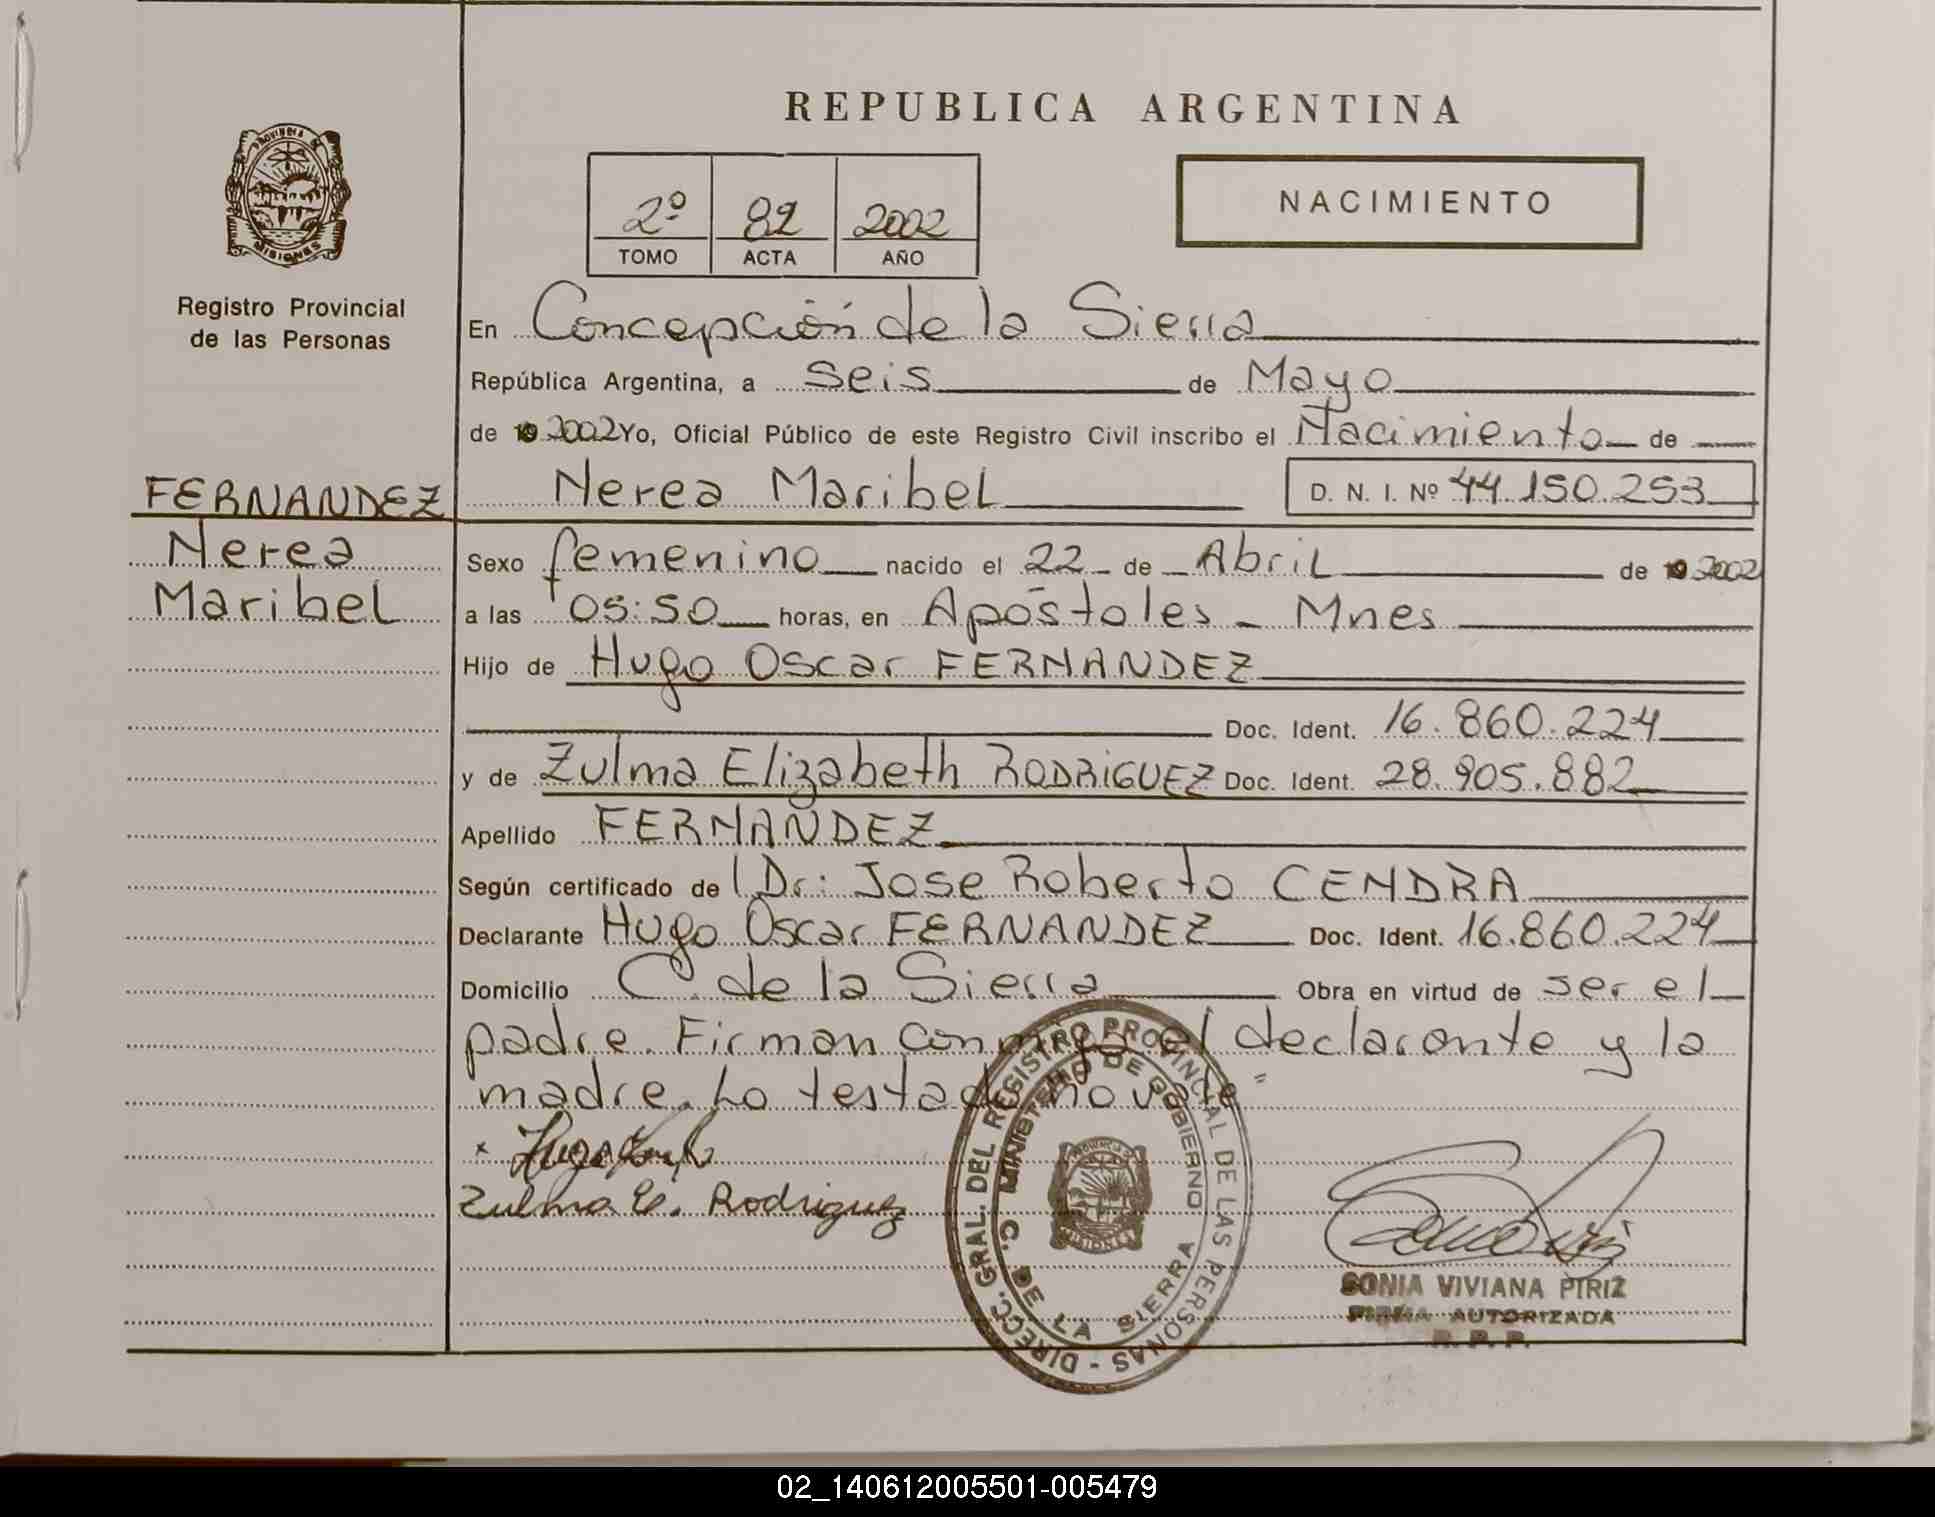 REPUBLICA ARGENTINA
PROVINCIA DE
MISIONES
Registro Provincial
de las Personas
2º 82 2002
TOMO ACTA AÑO
NACIMIENTO
En Concepción de la Sierra
República Argentina, a seis de Mayo
de 19 2002 Yo, Oficial Público de este Registro Civil inscribo el Nacimiento de
FERNANDEZ
Nerea Maribel D. N. I. Nº 44.150.253
Nerea
Maribel
Sexo femenino nacido el 22 de Abril de 19 2002
a las 05:50 horas, en Apóstoles - Mnes
Hijo de Hugo Oscar FERNANDEZ
Doc. Ident. 16.860.224
y de Zulma Elizabeth RODRIGUEZ Doc. Ident. 28.905.882
Apellido FERNANDEZ
Según certificado de Dr: Jose Roberto CENDRA
Declarante Hugo Oscar FERNANDEZ Doc. Ident. 16.860.224
Domicilio C. de la Sierra Obra en virtud de ser el
padre. Firman conmigo el declarante y la
madre. Lo testado no vale
Zulma E. Rodriguez
DIRECC. GRAL. DEL REGISTRO PROVINCIAL DE LAS PERSONAS -
MINISTERIO DE GOBIERNO
C. DE LA SIERRA
PROVINCIA DE
MISIONES
SONIA VIVIANA PIRIZ
FIRMA AUTORIZADA
R. P. P.
02_140612005501-005479